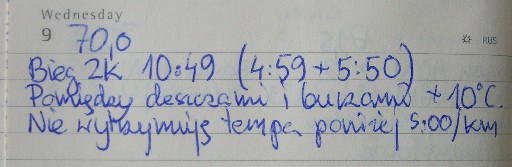 Wednesday
9 70,0
RUS
Bieg 2k 10:49 (4:59 + 5:50)
Pomiędzy deszczami i burzami +10°C.
Nie wytrzymuję tempa poniżej 5:00/km